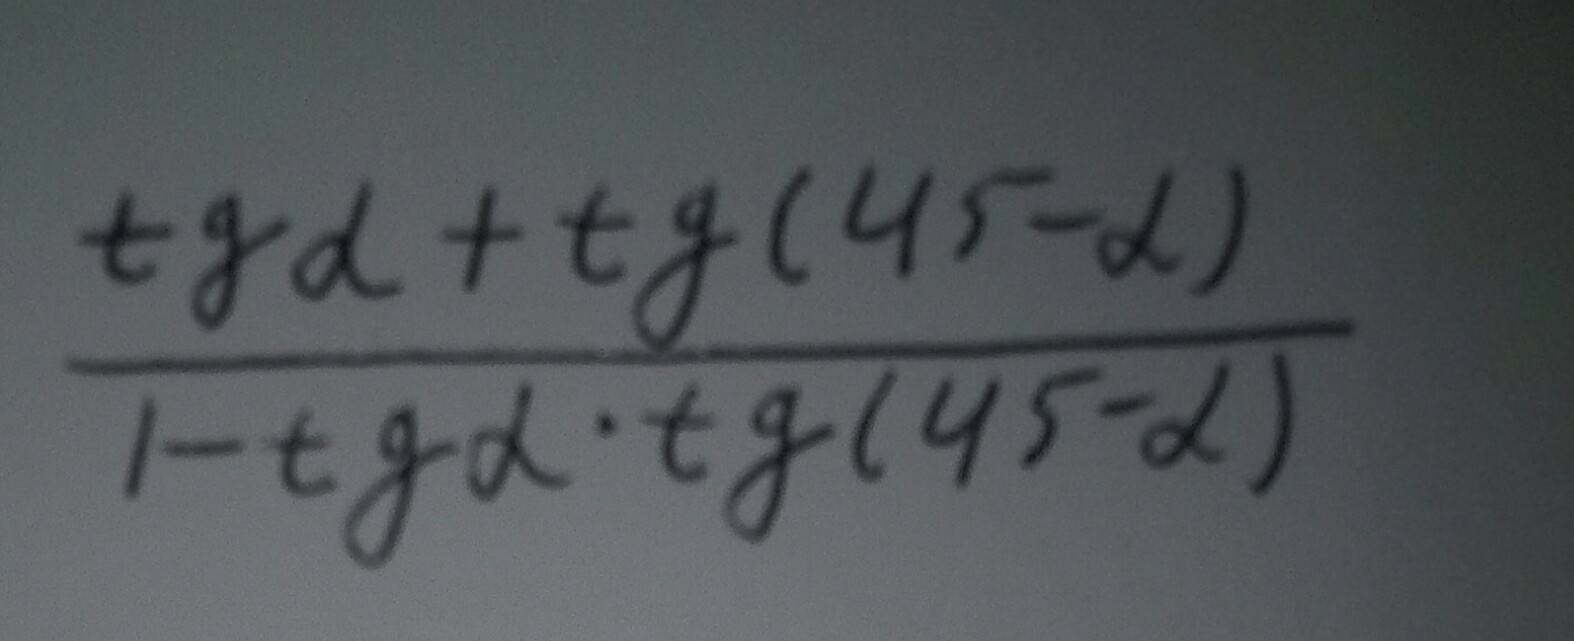 tgα + tg(45-α)
1-tgα·tg(45-α)